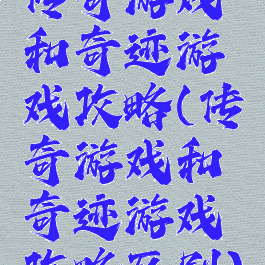 传奇游戏
和奇迹游
戏攻略(传
奇游戏和
奇迹游戏
攻略